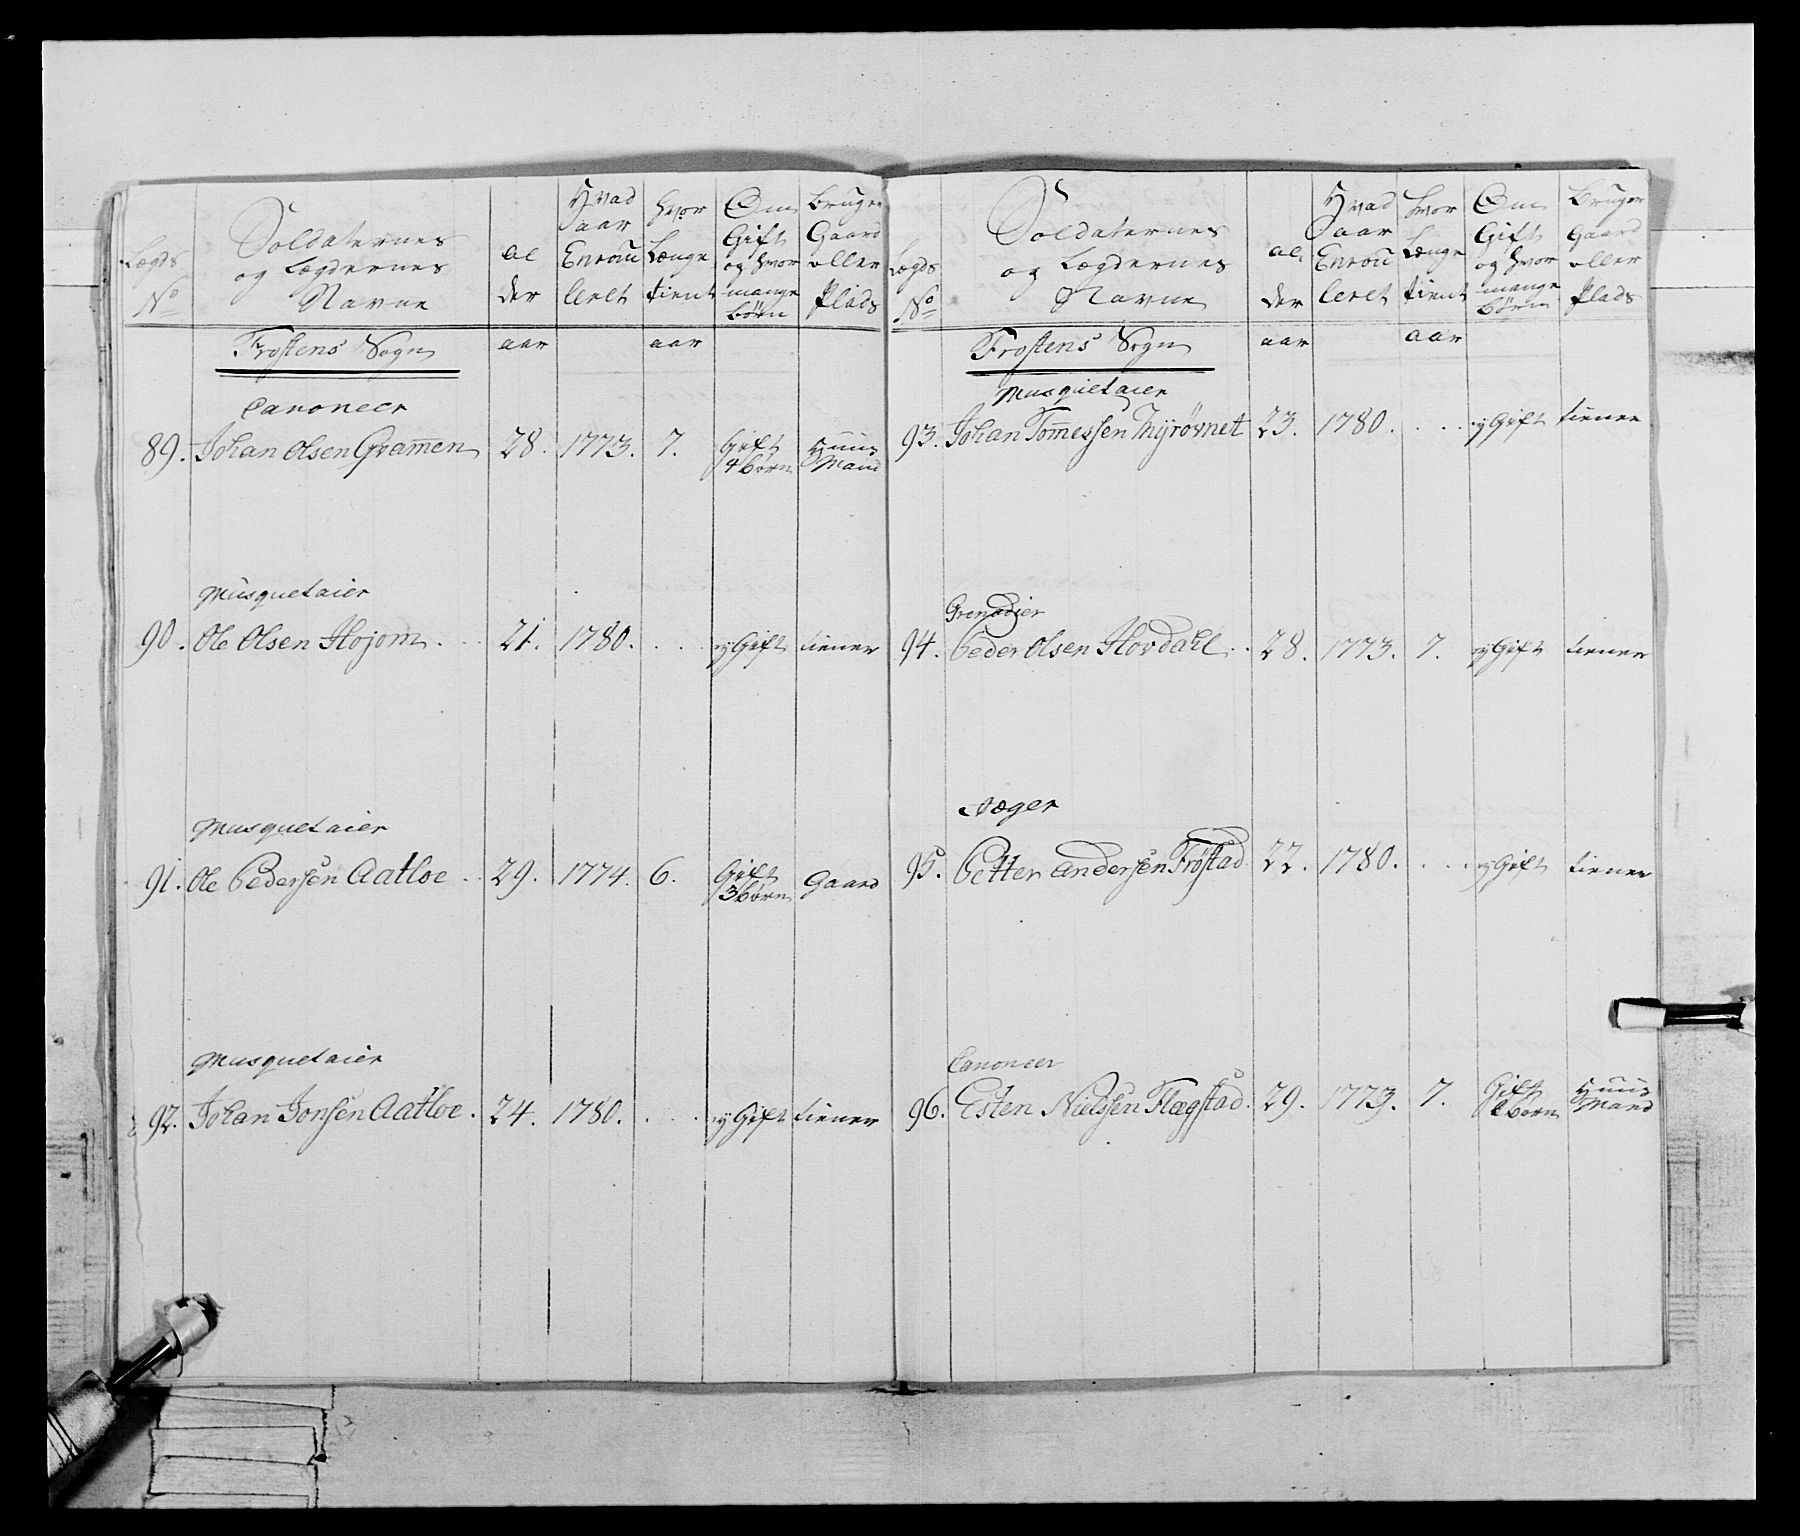 Lægds
No
Soldaternes
og Lægdernes
Navne
al
der
Hvad
aar
Enrou
leret
hvor
Længe
tient
Om
Gift
og hvor
mange
børn
Bruger
Gaard
eller
Plads
Frostens Sogn
aar
aar
Canoneer
89. Johan Olsen Gramen 28. 1773. 7. Gift Huus
4 børn Mand
Musquetaier
90. Ole Olsen Hojom . . 21. 1780. . . ey Gift tiener
Musquetaier
91. Ole Pedersen Aatloe . . 29. 1774. 6. Gift Gaard
3 børn
Musquetaier
92. Johan Jonsen Aatloe . 24. 1780. . . . ey Gift tiener
Lægds
No
Soldaternes
og Lægdernes
Navne
al
der
Hvad
aar
Enrou
leret
hvor
Længe
tient
Om
Gift
og hvor
mange
børn
Bruger
Gaard
eller
Plads
Frostens Sogn
aar
aar
Musquetaier
93. Johan Tomessen 23. 1780. . . . ey Gift tiener
Grenadier
94. Peder Olsen Hovdahl . . 28. 1773. 7. ey Gift tiener
Jæger
95. Petter Andersen Frøstad. 22. 1780. . . . ey Gift tiener
Canoneer
96. Esten Nielssen Flægstad. 29. 1773. 7. Gift Huus
børn Mand